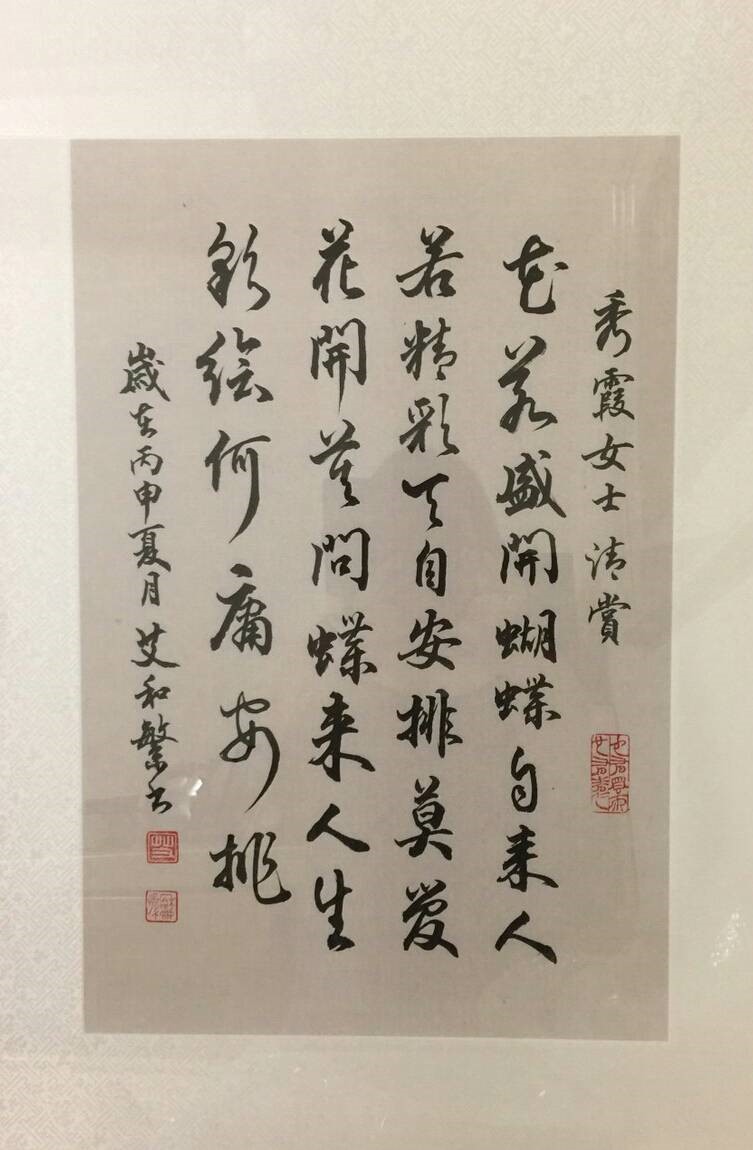 秀霞女士清賞
花若盛開蝴蝶自来人
若精彩天自安排莫
花開莫問蝶来人生
彩绘何庸安排
歲在丙申夏月艾和繁书